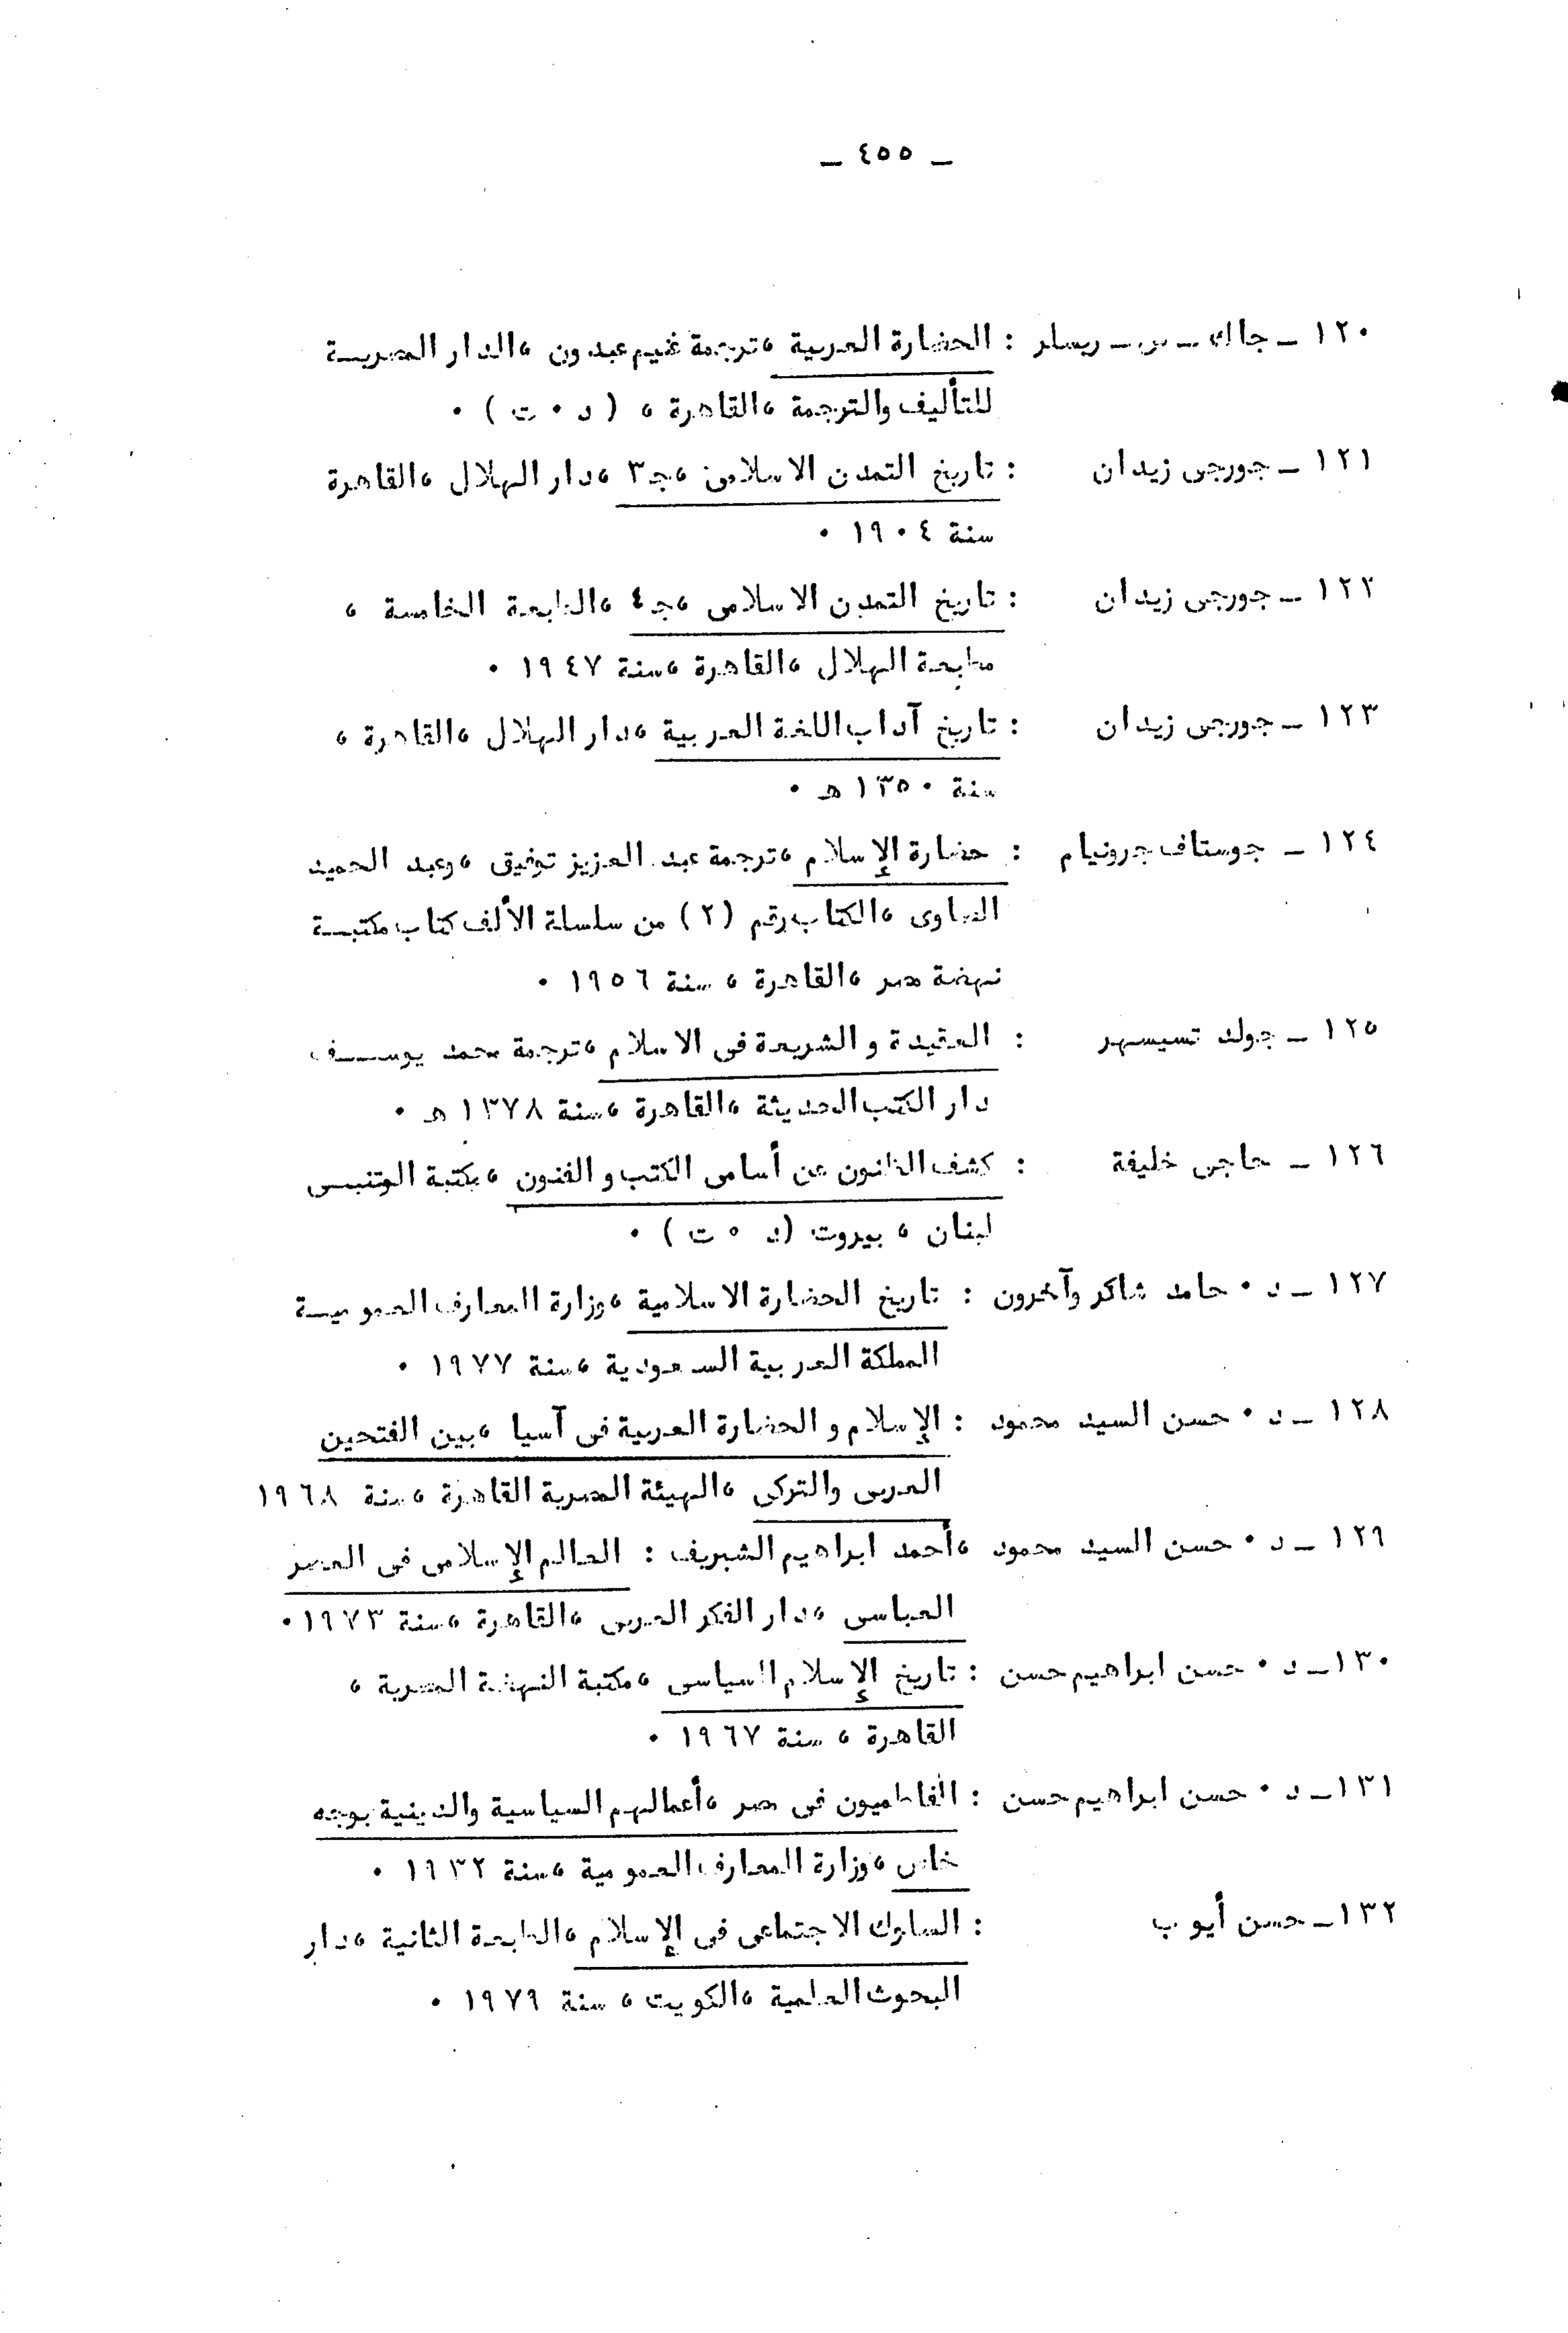 ـ ٤٥٥ ـ
١٢٠ ـ جاك ـ س ـ ريسلر : الحضارة العربية ، ترجمة غنيم عبدون ، الدار المصريـــة
للتأليف والترجمة ، القاهرة ، ( د ٠ ت ) ٠
١٢١ ـ جورجى زيدان : تاريخ التمدن الاسلامى ، جـ٣ ، دار الهلال ، القاهرة
سنة ١٩٠٤ ٠
١٢٢ ـ جورجى زيدان : تاريخ التمدن الاسلامى ، جـ٤ ، الطبعة الخامسة ،
مطبعة الهلال ، القاهرة ، سنة ١٩٤٧ ٠
١٢٣ ـ جورجى زيدان : تاريخ آداب اللغة العربية ، دار الهلال ، القاهرة ،
سنة ١٣٥٠ هـ ٠
١٢٤ ـ جوستاف جرونيام : حضارة الإسلام ، ترجمة عبد العزيز توفيق ، وعبد الحميد
العباوى ، الكتاب رقم (٢) من سلسلة الألف كتاب مكتبـــة
نهضة مصر ، القاهرة ، سنة ١٩٥٦ ٠
١٢٥ ـ جولد تسيسهر : العقيدة و الشريعة فى الاسلام ، ترجمة محمد يوســــف
دار الكتب الحديثة ، القاهرة ، سنة ١٣٧٨ هـ ٠
١٢٦ ـ حاجى خليفة : كشف الظنون عن أسامى الكتب و الفنون ، مكتبة المتنبــى
لبنان ، بيروت (د ٠ ت ) ٠
١٢٧ ـ د ٠ حامد شاكر وآخرون : تاريخ الحضارة الاسلامية ، وزارة المعارف العموميـــة
المملكة العربية السعودية ، سنة ١٩٧٧ ٠
١٢٨ ـ د ٠ حسن السيد محمود : الإسلام و الحضارة العربية فى آسيا ، بين الفتحين
العربى والتركى ، الهيئة المصرية القاهرة ، سنة ١٩٦٨
١٢٩ ـ د ٠ حسن السيد محمود ، أحمد ابراهيم الشريف : العالم الإسلامى فى العصر
العباسى ، دار الفكر العربى ، القاهرة ، سنة ١٩٧٣ ٠
١٣٠ـ د ٠ حسن ابراهيم حسن : تاريخ الإسلام السياسى ، مكتبة النهضة المصرية ،
القاهرة ، سنة ١٩٦٧ ٠
١٣١ـ د ٠ حسن ابراهيم حسن : الفاطميون فى مصر ، أعمالهم السياسية والدينية بوجه
خاص ، وزارة المعارف العمومية ، سنة ١٩٣٢ ٠
١٣٢ـ حسن أيوب : السلوك الاجتماعى فى الإسلام ، الطبعة الثانية ، دار
البحوث العلمية ، الكويت ، سنة ١٩٧٩ ٠